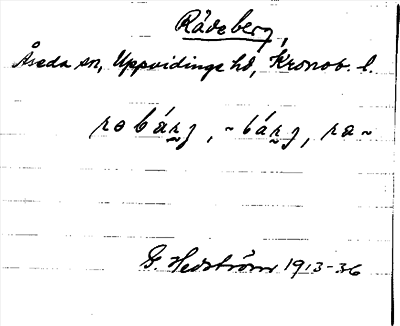 Rådeberg,
Åseda sn, Uppvidinge hd, Kronob. l.
rabárg, ~bárg, ra~
G. Hedström 1913-36